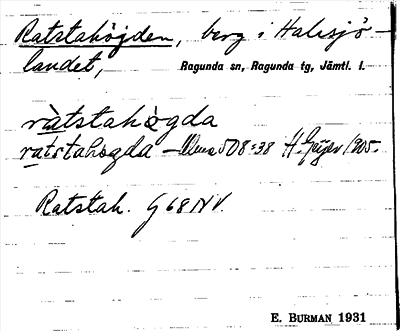 Ratstahöjden, berg i Halasjö-
landet,
Ragunda sn, Ragunda tg, Jämtl. l.
ràtstahø̀gda
ratstahøgda – 508:38 H. Geijer 1905.
Ratstah. G 68 NV.
E. BURMAN 1931